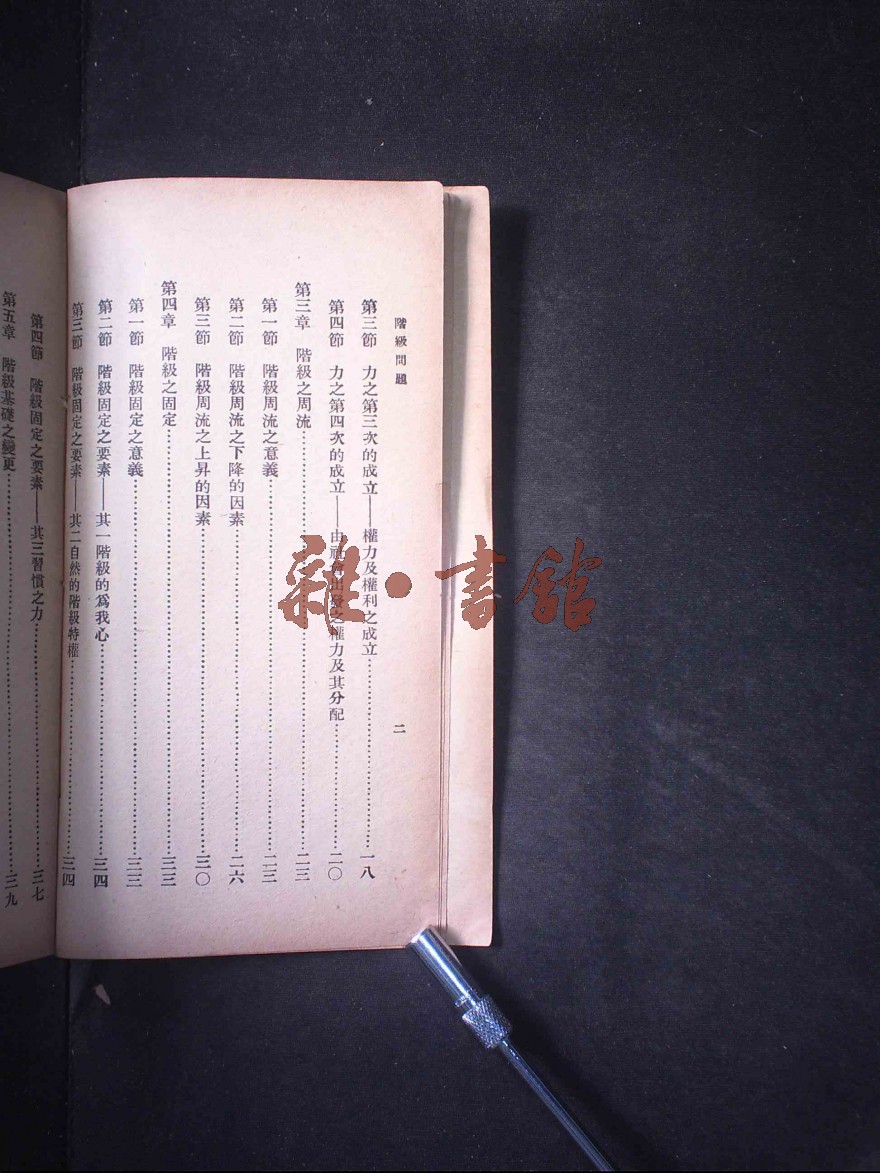 階級問題
二
第三節　力之第三次的成立——權力及權利之成立……一八
第四節　力之第四次的成立——由社會出發之權力及其分配……二〇
第三章　階級之周流……二三
第一節　階級周流之意義……二三
第二節　階級周流之下降的因素……二六
第三節　階級周流之上昇的因素……三〇
第四章　階級之固定……三三
第一節　階級固定之意義……三三
第二節　階級固定之要素——其一階級的爲我心……三四
第三節　階級固定之要素——其二自然的階級特權……三四
第四節　階級固定之要素——其三習慣之力……三七
第五章　階級基礎之變更……三九
雜·書館